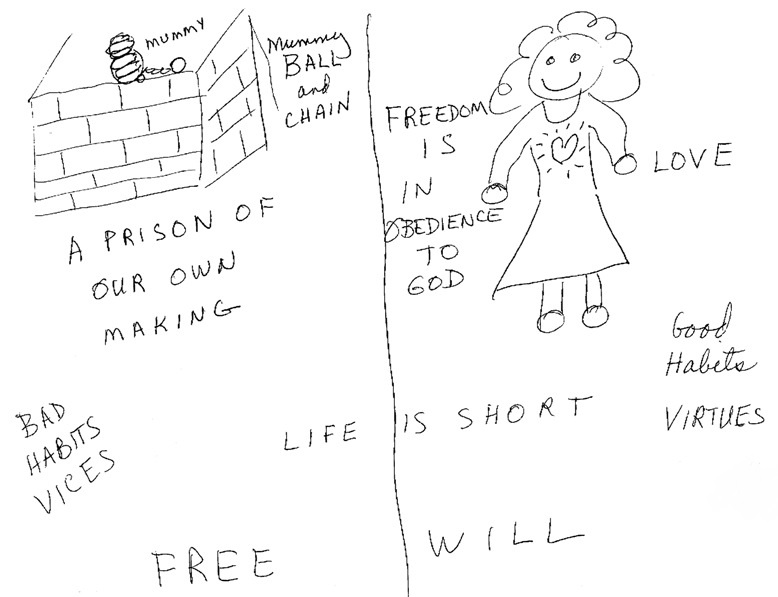 MUMMY
Mummy
BALL
and
CHAIN
A PRISON OF
OUR OWN
MAKING
BAD
HABITS
VICES
FREEDOM
IS
IN
OBEDIENCE
TO
GOD
LOVE
Good
Habits
VIRTUES
LIFE IS SHORT
FREE WILL